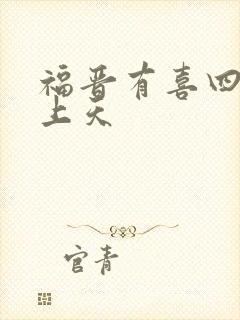 福晋有喜四
上天
官青